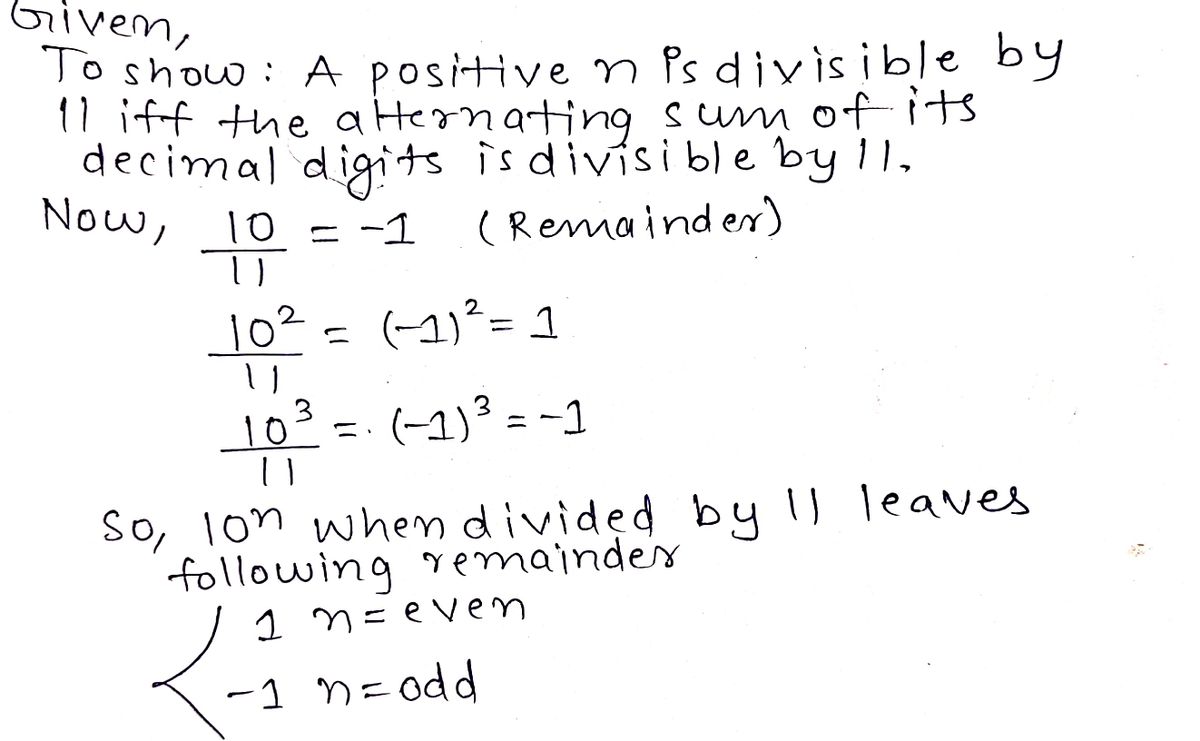 Given,
To show : A positive n is divisible by
11 iff the alternating sum of its
decimal digits is divisible by 11.
Now, 10/11 = -1 (Remainder)
10²/11 = (-1)² = 1
10³/11 = (-1)³ = -1
So, 10ⁿ when divided by 11 leaves
following remainder
1 n = even
-1 n = odd